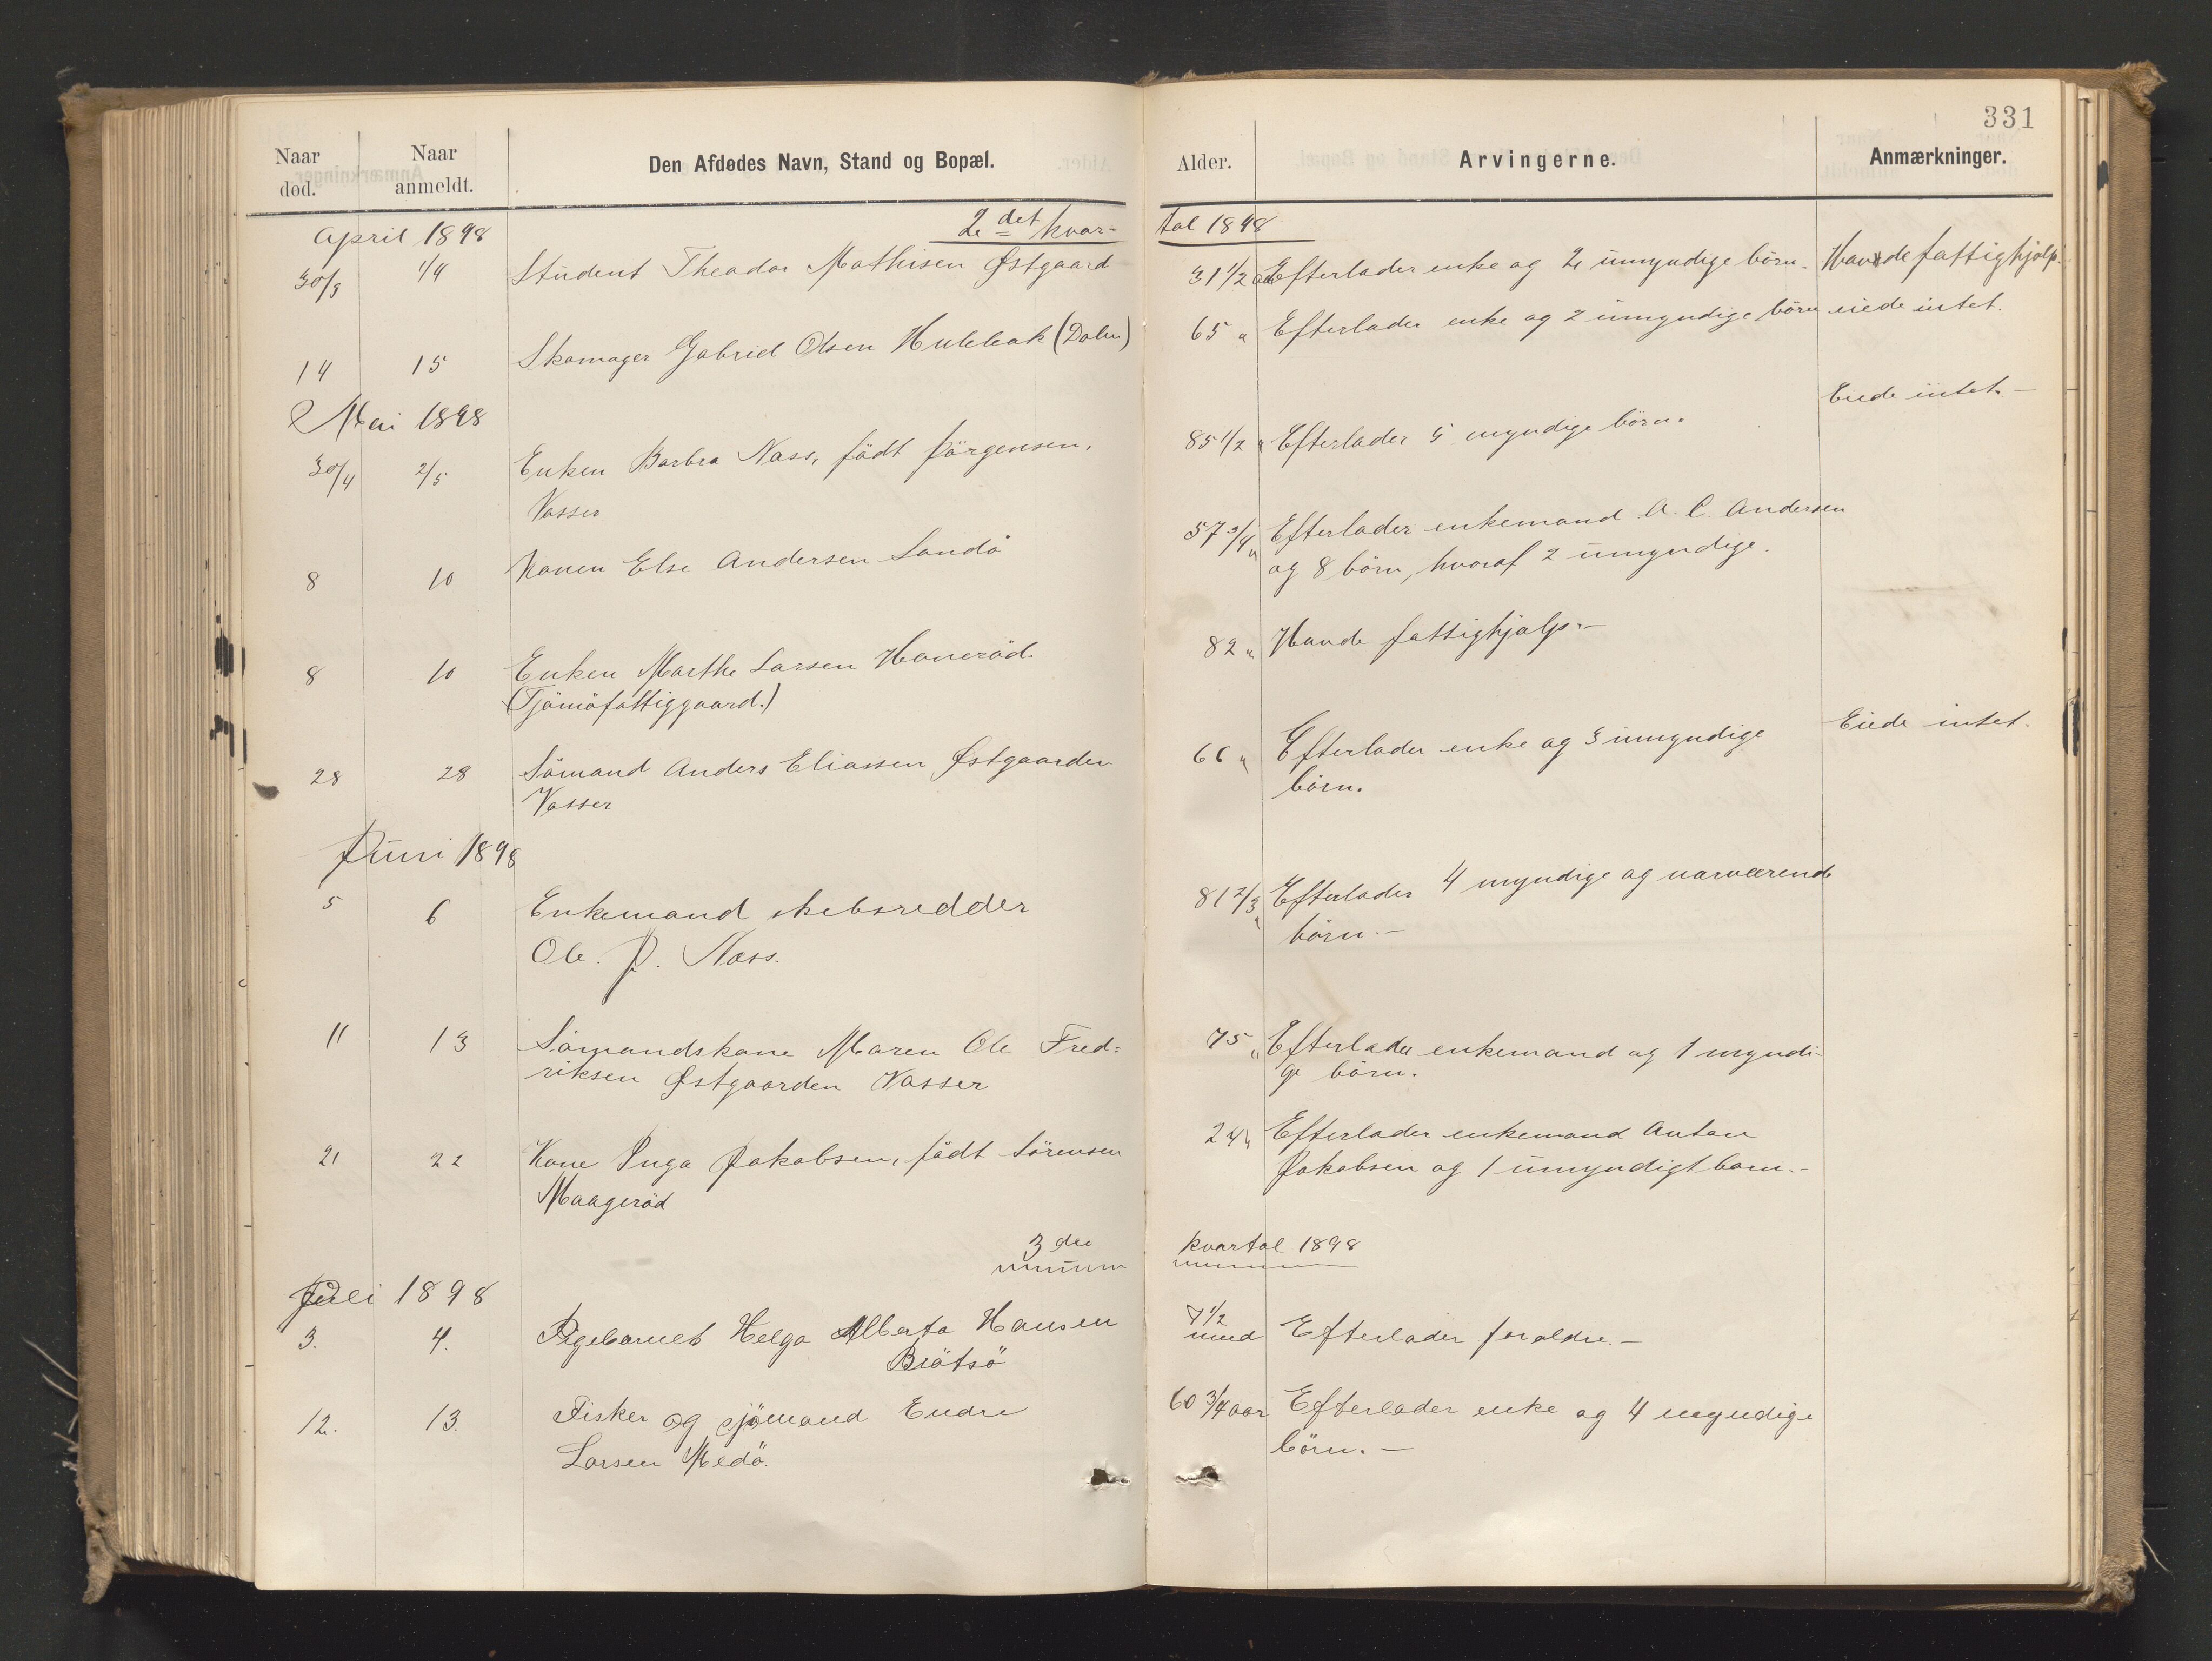 331
Naar død.
Naar anmeldt.
Den Afdødes Navn, Stand og Bopæl.
Alder.
Arvingerne.
Anmærkninger.
2det kvar- tal 1898
April 1898
30/3 1/4 Student Theodor Mathisen Østgaard 31 1/2 aar Efterlader enke og 2 umyndige börn. Havde fattighjælp.
14 15 Skomager Gabriel Olsen Hulebak (Dalen) 65 " Efterlader enke og 2 umyndige börn eiede intet.
Mai 1898
30/4 2/5 Enken Barbra Næss, födt Jörgensen, 85 1/2 " Efterlader 5 myndige börn. Eiede intet. —
Vasser
8 10 Konen Else Andersen Sandö 57 3/4 " Efterlader enkemand A. C. Andersen
og 8 börn, hvoraf 2 umyndige.
8 10 Enken Marthe Larsen Haneröd. 82 " Havde fattighjælp. —
(Tjömöfattiggaard.)
28 28 Sömand Anders Eliassen Östgaarden 66 " Efterlader enke og 3 umyndige Eiede intet.
Vasser börn.
Juni 1898
5 6 Enkemand skibsredder 81 2/3 " Efterlader 4 myndige og nærværende
Ole. J. Næss. börn. —
11 13 Sömandskone Maren Ole Fred= 75 " Efterlader enkemand og 1 myndi-
riksen Østgaarden Vasser ge börn.
21 22 Kone Inga Jakobsen, födt Sörensen 24 " Efterlader enkemand Anton
Maageröd Jakobsen og 1 umyndigt barn. -
3die kvartal 1898
Juli 1898
3. 4. Pigebarnet Helga Alberta Hansen 7 1/2 mnd Efterlader forældre. —
Brötsö
12. 13. Fisker og sjömand Endre 60 3/4 aar Efterlader enke og 4 myndige
Larsen Medö. börn. —